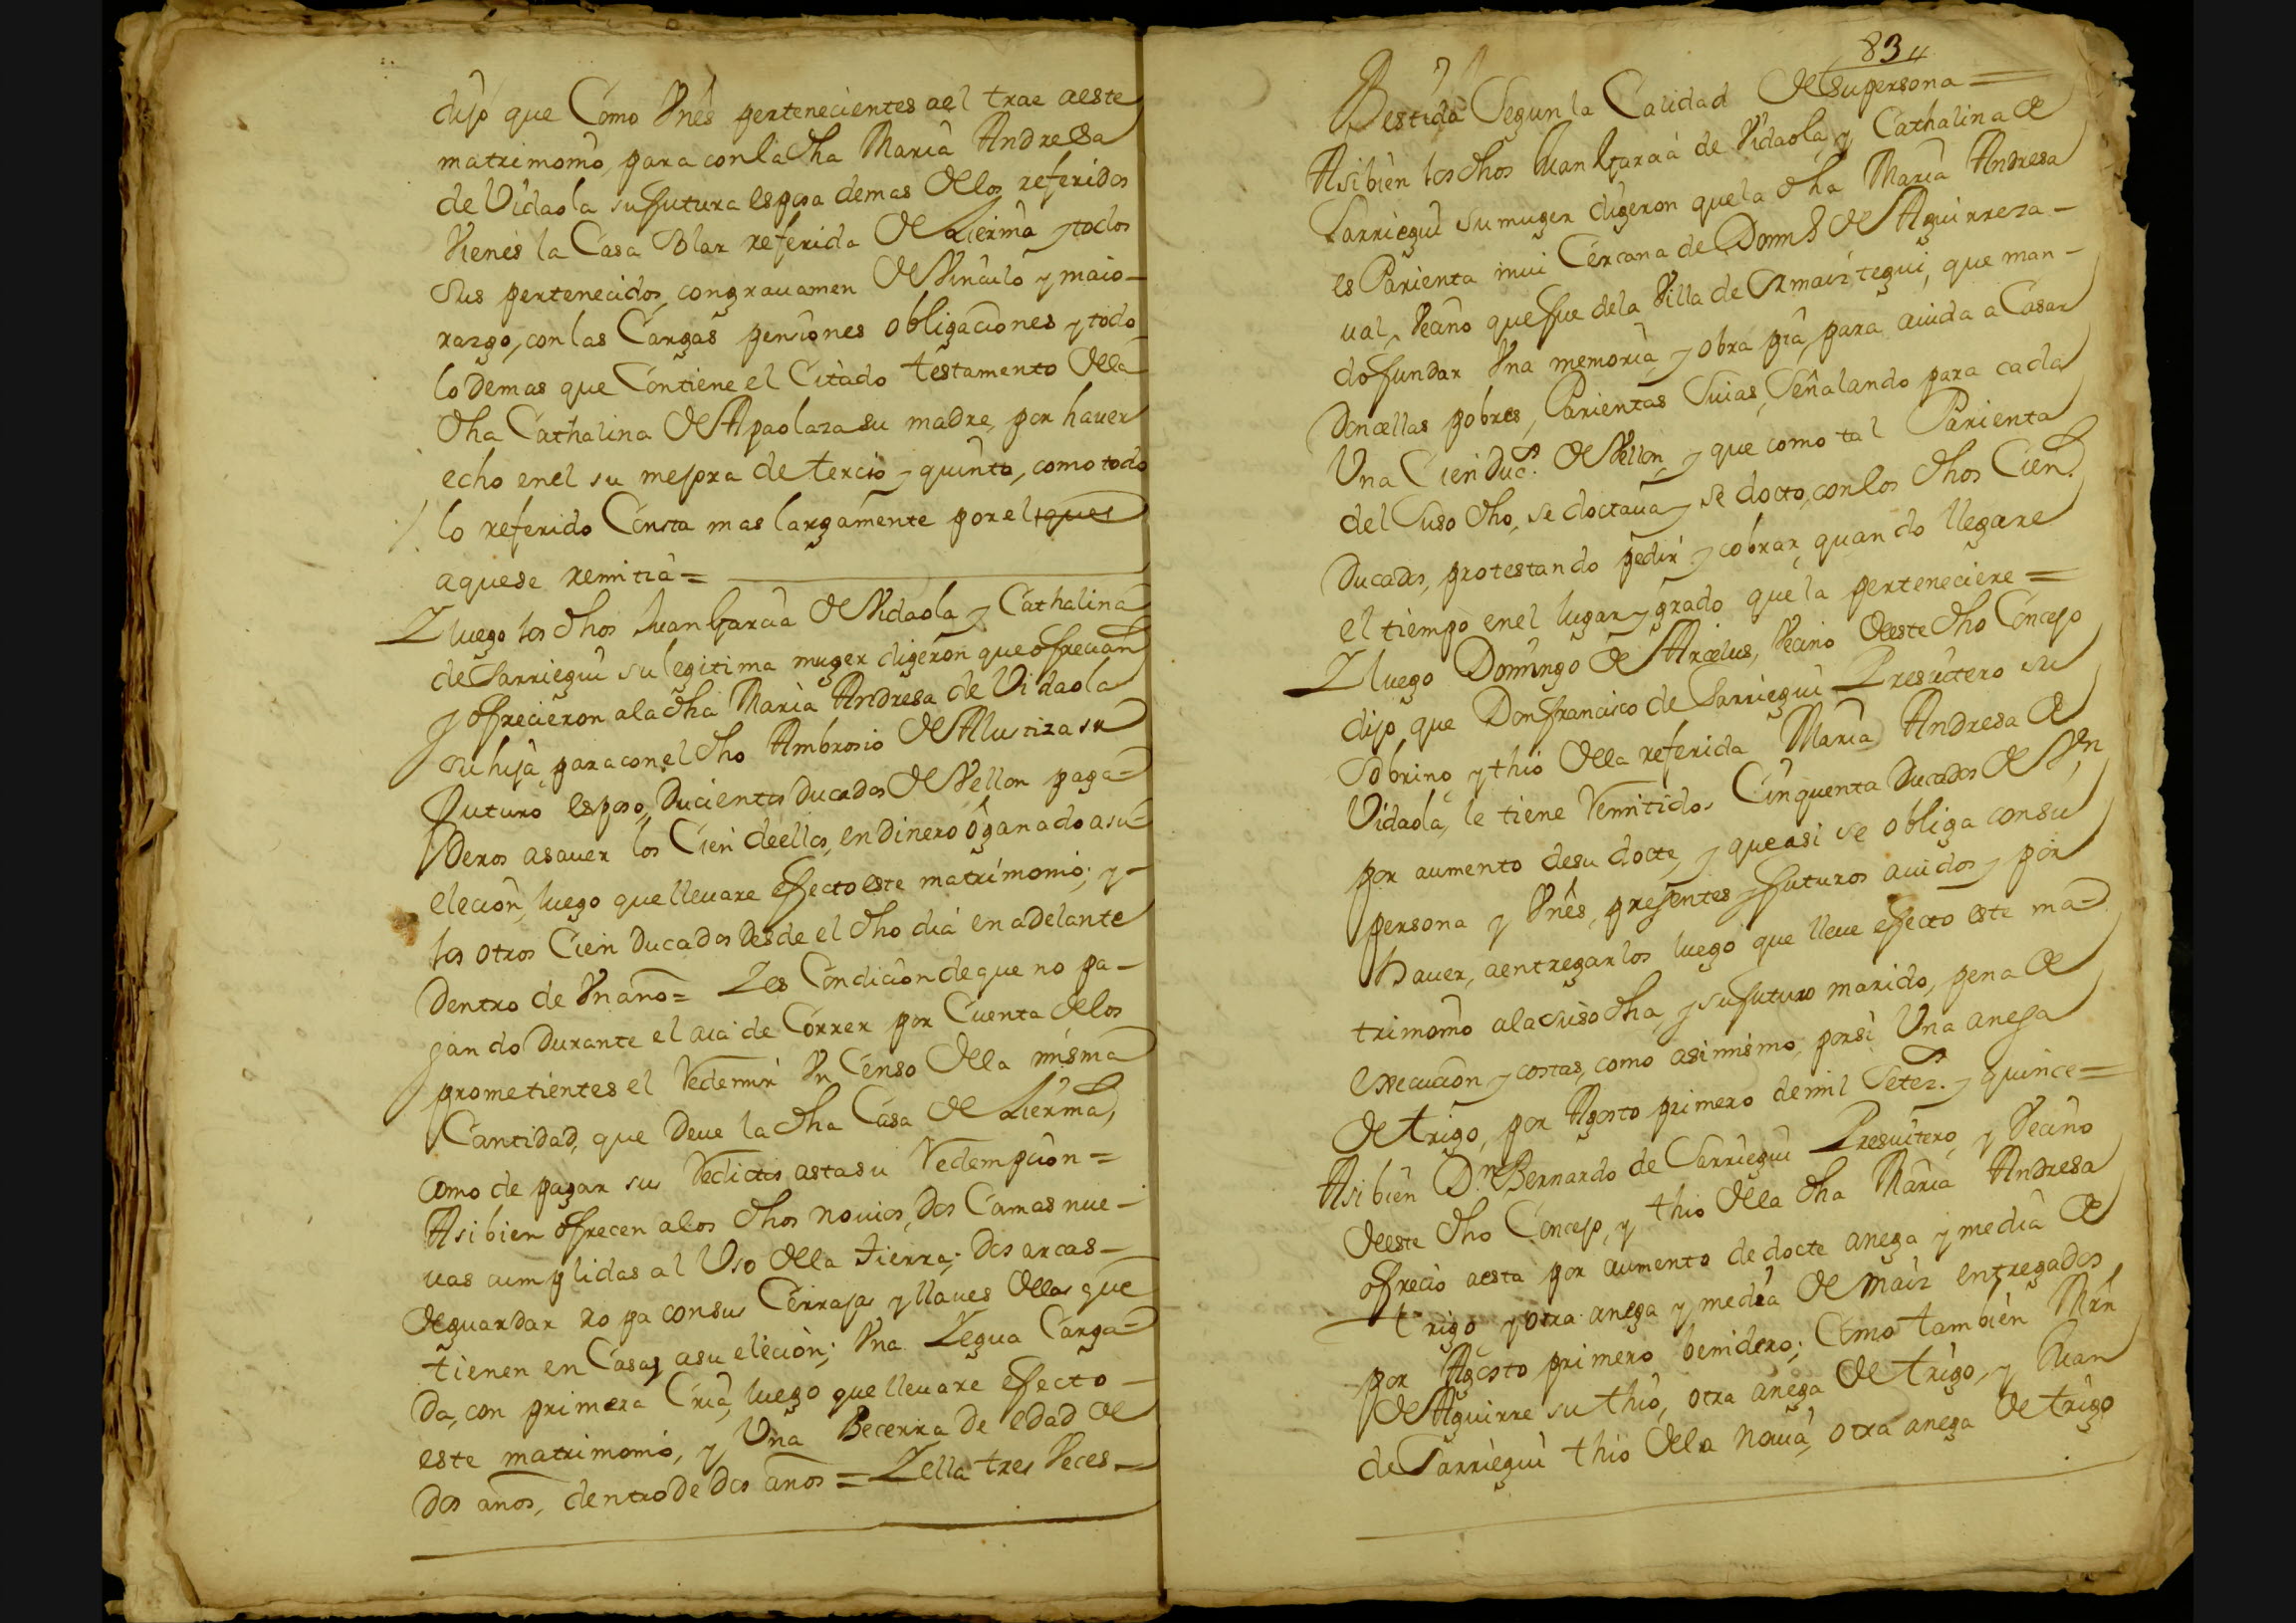 dijo que Como Vnês pertenecientes ael trae aeste
matrimonio, para con la dha Maria Andresa
de Vidaola su futura esposa demas de los referidos
Vienes la Casa Solar referida de Lierma y todos
Sus pertenecidos, con gravamen de Vinculo y maio-
razgo, con las Cargas pensiones obligaciones y todo
lo demas que Contiene el Citado testamento de la
dha Cathalina de Apaolaza su madre, por haver
echo en el su mejora de tercio y quinto, como todo
lo referido Consta mas largamente por el
aque se remitia =
Y luego los dhos Juan Garcia de Vidaola y Cathalina
de Sarriegui su legitima muger digeron que ofrecian
y ofrecieron ala dha Maria Andresa de Vidaola
su hija, para con el dho Ambrosio de Alustiza su
futuro esposo, Ducientos Ducados de Vellon paga=
deros asaver los Cien de ellos, en Dinero ò ganado a su
elecion, luego que llevare efecto este matrimonio; y-
los otros Cien Ducados desde el dho dia en adelante
dentro de Vn año = Y es Condicion de que no pa-
gando durante el aia de Correr por Cuenta de los
prometientes el Redemir Vn Censo de la misma
Cantidad, que deve la dha Casa de Lierma,
como de pagar sus Redictos asta su Redempcion =
Asi bien ofrecen alos dhos novios, dos Camas nue-
vas cumplidas al Uso de la tierra; dos arcas-
de guardar ropa con sus Cerrajas y llaves de las que
tienen en Casa, a su elecion; Vna Yegua Carga=
da, con primera Cria, luego que llevare efecto-
este matrimonio, y Una Becerra de edad de
dos años, dentro de dos años = Y ella tres Veces-
83
Bestida Segun la Calidad de su persona =
Asi bien los dhos Juan Garcia de Vidaola, y Cathalina de
Sarriegui su muger digeron que la dha Maria Andresa
es Parienta mui Cercana de de Aguirreza-
val, Vecino que fue de la Villa de Ormaiztegui, que man-
do fundar Vna memoria, y obra pia, para aiuda a Casar
Doncellas pobres, Parientas Suias, Señalando para cada
Una Cien Ducs. de Vellon, y que como tal Parienta
del Suso dho, se doctava y se docto, con los dhos Cien
Ducados, protestando pedir y cobrar, quando llegare
el tiempo en el lugar y grado que la perteneciere =
Y luego Domingo de Arcelus, Vecino de este dho Concejo
dijo que Don francisco de Sarriegui Presvitero su
Sobrino, y thio de la referida Maria Andresa de
Vidaola, le tiene Remitidos Cinquenta Ducados de Vn
por aumento de su docte, y que asi se obliga con su
persona y Vnês, presentes y futuros avidos y por
haver, aentregarlos luego que lleve efecto este ma=
trimonio ala suso dha, y su futuro marido, pena de
execucion y costas, como asi mismo, por si Una anega
de trigo, por Agosto primero de mil Setez. y quince =
Asi bien Dn Bernardo de Sarriegui Presvitero, y Vecino
de este dho Concejo, y thio de la dha Maria Andresa
ofrecio aesta por aumento de docte anega y media de
trigo y otra anega y media de maiz entregados
por Agosto primero benidero; Como tambien Mrn
de Aguirre su thio, otra anega de trigo, y Juan
de Sarriegui thio de la novia, otra anega de trigo